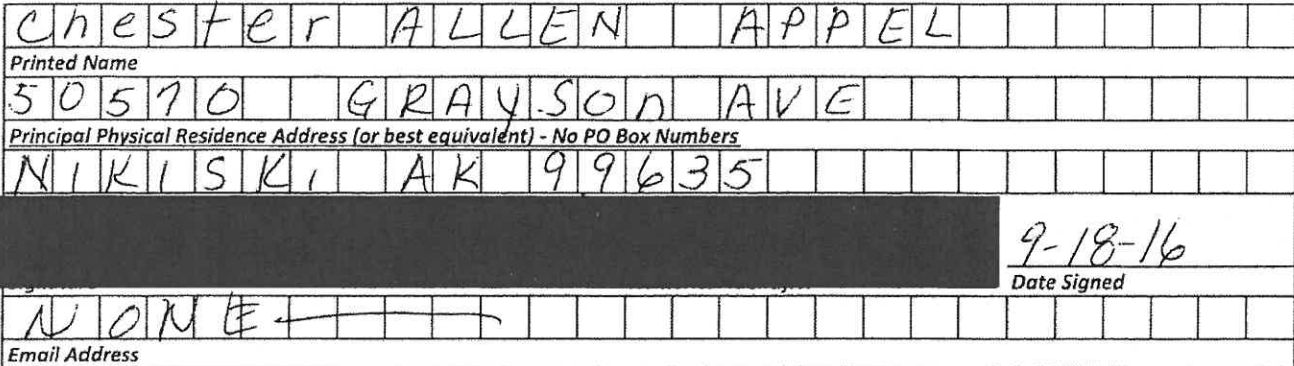 Chester ALLEN APPEL
Printed Name
50570 GRAYSON AVE
Principal Physical Residence Address (or best equivalent) - No PO Box Numbers
NIKISKI AK 99635
9-18-16
Date Signed
NONE
Email Address